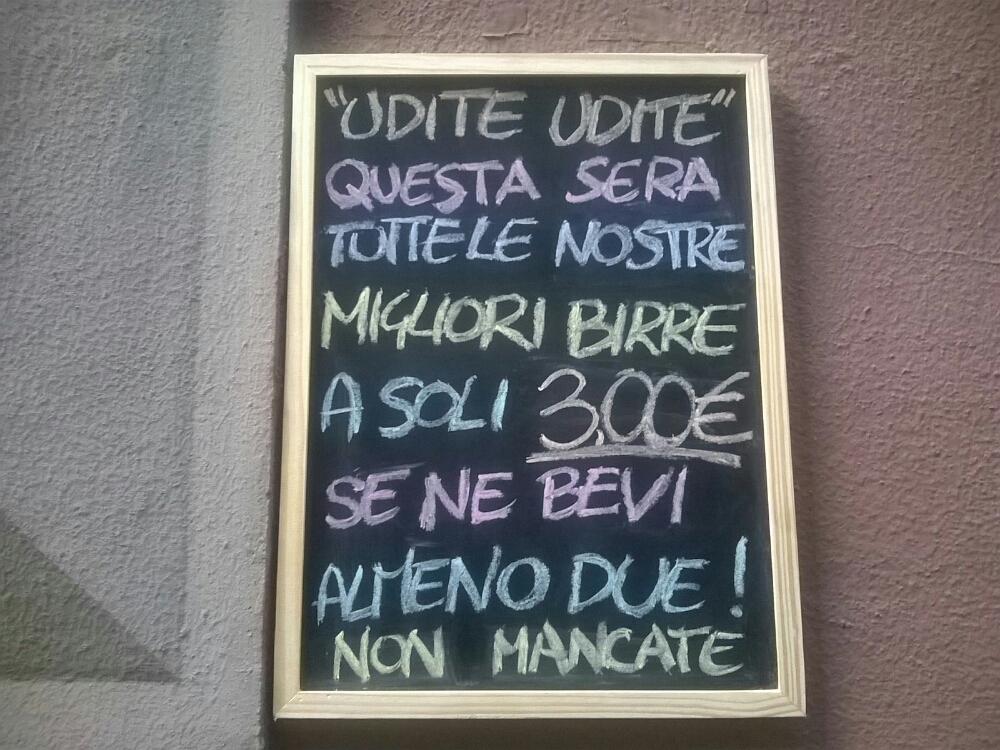 "UDITE UDITE"
QUESTA SERA
TUTTE LE NOSTRE
MIGLIORI BIRRE
A SOLI 3,00€
SE NE BEVI
ALMENO DUE!
NON MANCATE